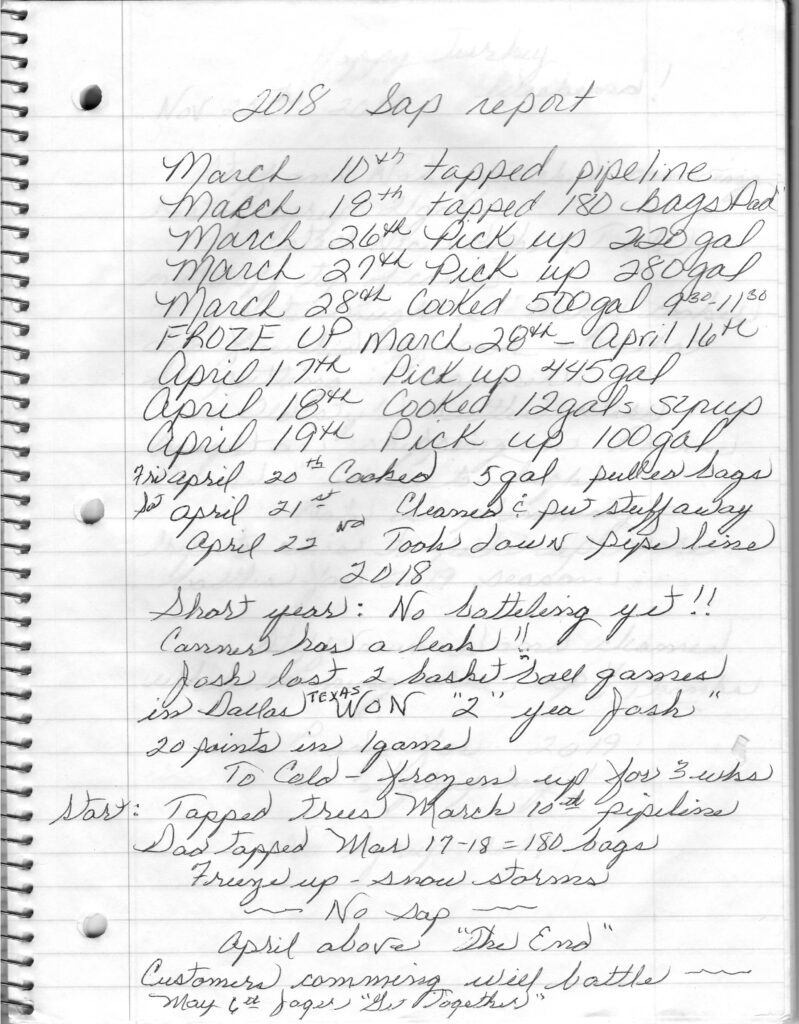 2018 Sap report
March 10th tapped pipeline
March 18th tapped 180 bags Dad
March 26th Pick up 220 gal
March 27th Pick up 280 gal
March 28th Cooked 500 gal 9 30 - 11 30
FROZE UP March 28th - April 16th
April 17th Pick up 445 gal
April 18th Cooked 12 gals syrup
April 19th Pick up 100 gal
Fri april 20th Cooked 5 gal pulled bags
Sat april 21st Cleaned & put stuff away
April 22nd Took down pipe line
2018
Short year: No batteling yet!!
Canner has a leak!!
Josh lost 2 basket ball games
in Dallas TEXAS WON "2" yea Josh"
20 points in 1 game
To Cold - frozen up for 3 wks
Start: Tapped trees March 10th pipeline
Dad tapped Mar 17-18 = 180 bags
Freeze up - snow storms
~ No Sap ~
April above "The End"
Customers comming will battle ~
May 6th Jager "Get Together"